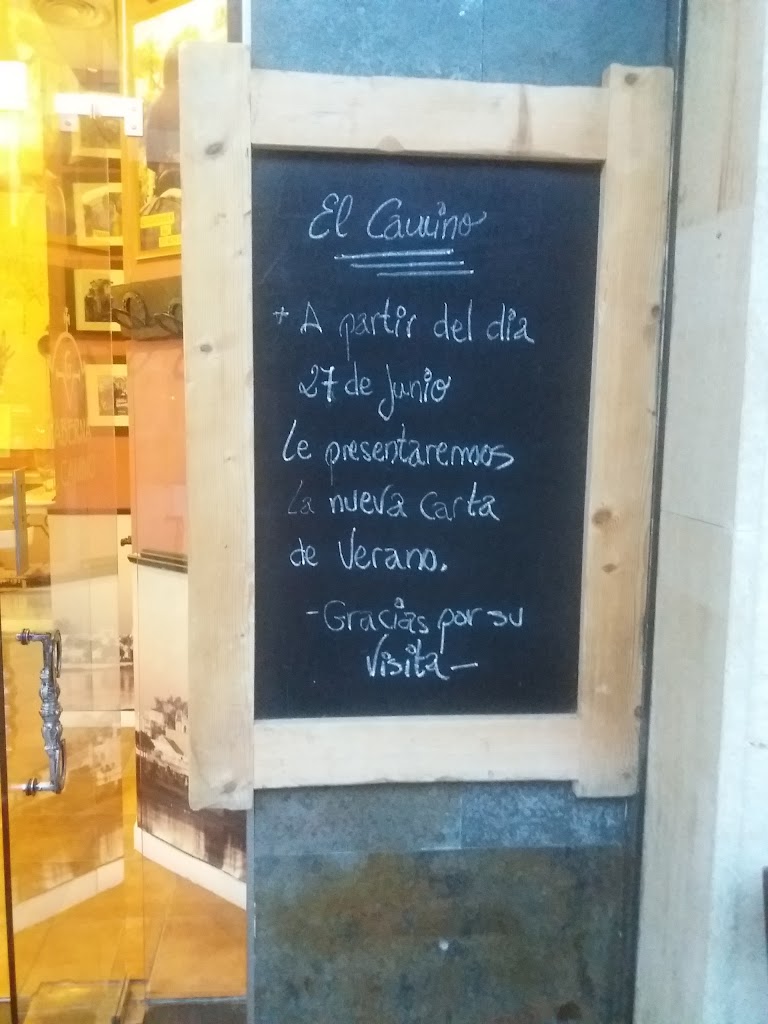 El Camino
+ A partir del dia
27 de Junio
Le presentaremos
La nueva carta
de Verano.
- Gracias por su
Visita -